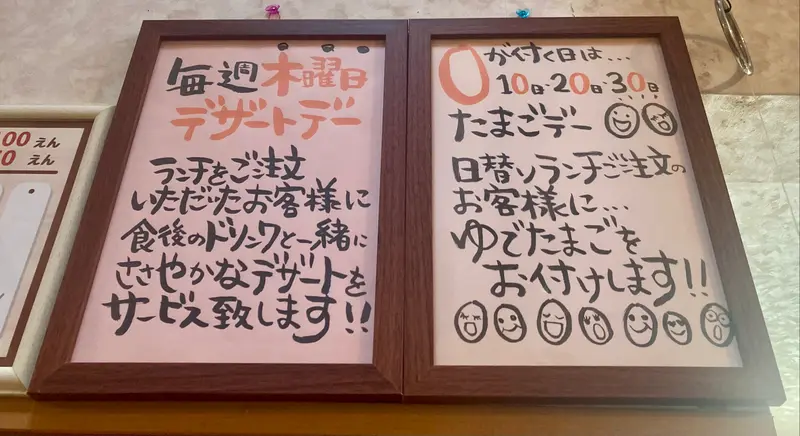 00えん
0えん
毎週木曜日
デザートデー
ランチをご注文
いただいたお客様に
食後のドリンクと一緒に
ささやかなデザートを
サービス致します!!
0が付く日は…
10日・20日・30日
たまごデー
日替りランチご注文の
お客様に…
ゆでたまごを
お付けします!!